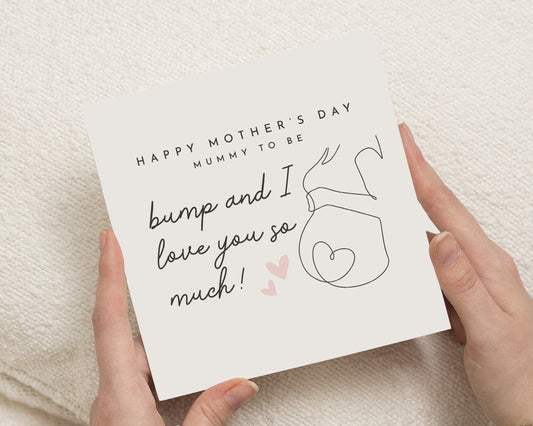 HAPPY MOTHER'S DAY
MUMMY TO BE
bump and I
love you so
much!